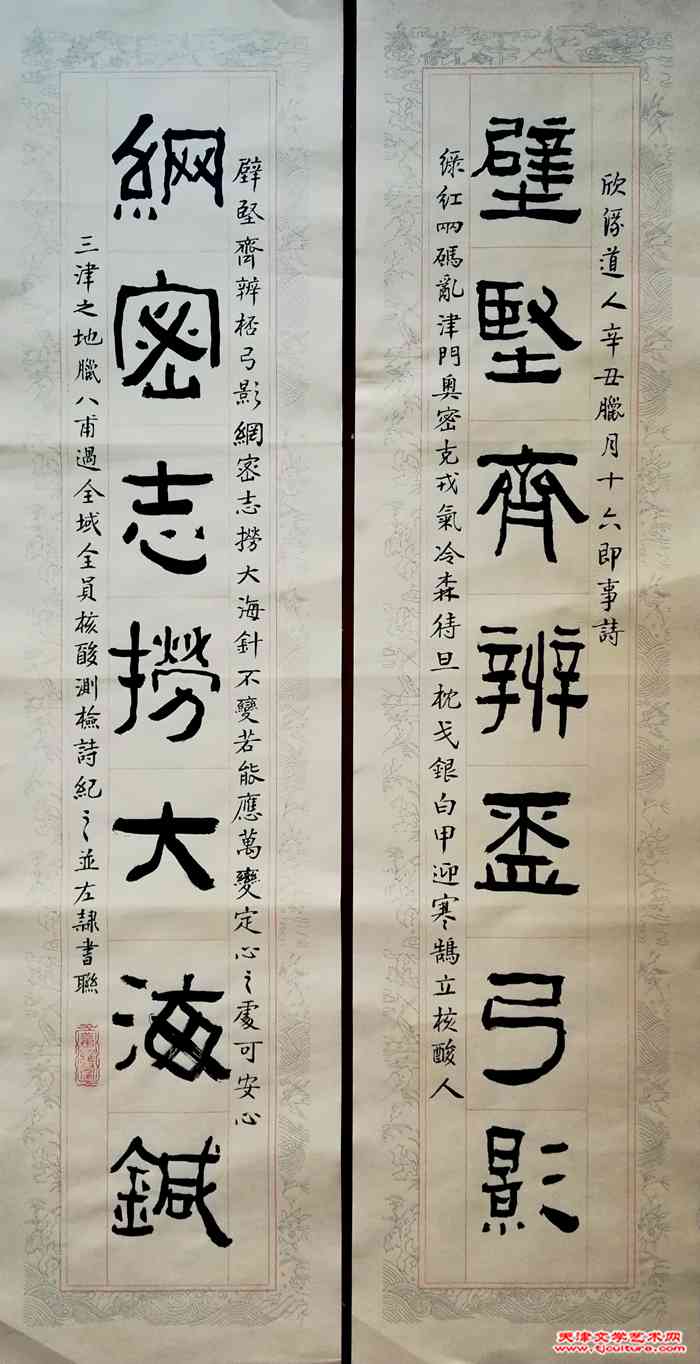 欣緣道人辛丑臘月十六即事詩
壁堅齊辨盃弓影
綠紅兩碼亂津門奧密克戎氣冷森待旦枕戈銀白甲迎寒鵠立核酸人
壁堅齊辨桮弓影網密志撈大海針不變若能應萬變定心之處可安心
網密志撈大海鍼
三津之地臘八甫過全域全員核酸測檢詩紀之並左隸書聯
天津文学艺术网
www.tjculture.com